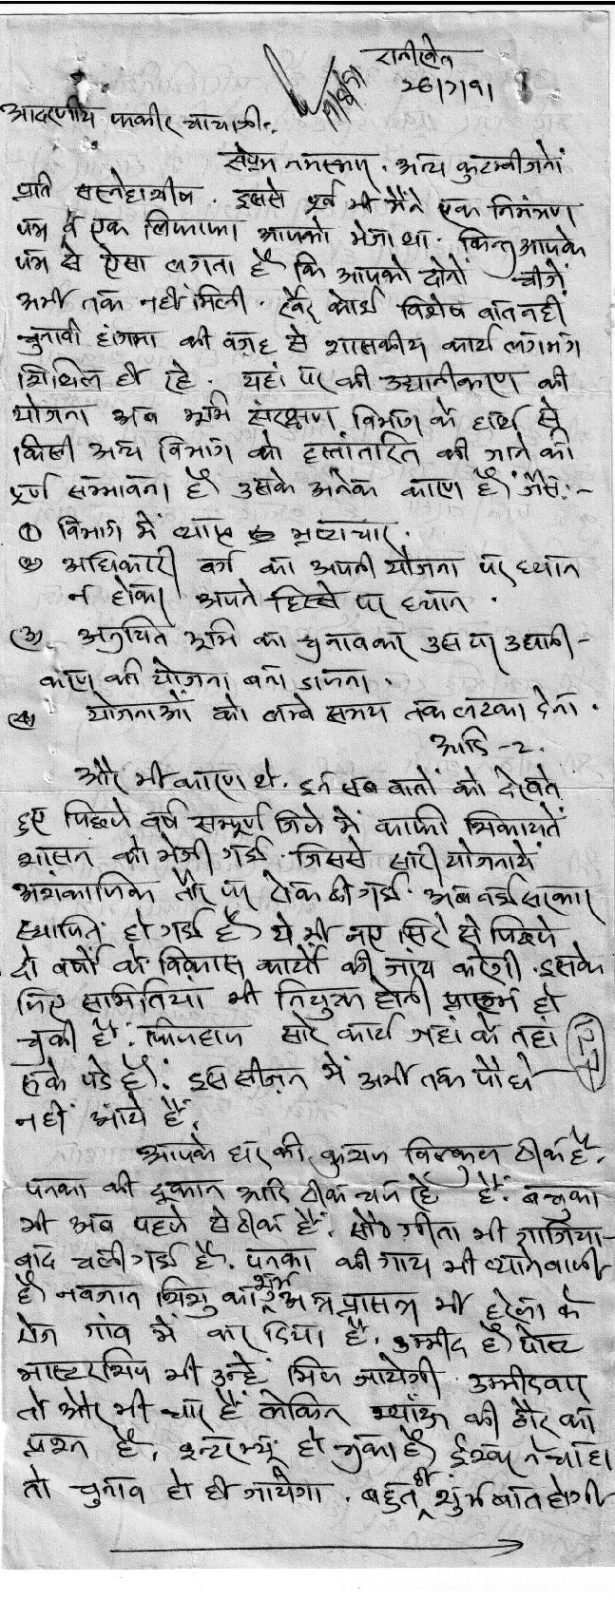 रानीखेत
26/7/91
आदरणीय फकीर चाचाजी,
सप्रेम नमस्कार. अन्य कुटम्बीजनों
प्रति सस्नेहाशीष. इससे पूर्व भी मैंने एक निमंत्रण
पत्र व एक लिफाफा आपको भेजा था. किन्तु आपके
पत्र से ऐसा लगता है कि आपको दोनों चीजें
अभी तक नहीं मिली. खैर कोई विशेष बात नहीं
चुनावी हंगामा की वजह से शासकीय कार्य लगभग
शिथिल ही रहे. यहां पर की उद्यानीकरण की
योजना अब भूमि संरक्षण विभाग के हाथ से
किसी अन्य विभाग को हस्तांतरित की जाने की
पूर्ण सम्भावना है उसके अनेक कारण हैं जैसे:-
① विभाग में व्याप्त भ्रष्टाचार.
② अधिकारी वर्ग का अपनी योजना पर ध्यान
न होकर अपने हिस्से पर ध्यान.
(3) अनुचित भूमि का चुनावकर उस पर उद्यानी-
करण की योजना बना डालना.
(4) योजनाओं को लम्बे समय तक लटका देना.
आदि-२.
और भी कारण थे. इन सब बातों को देखते
हुए पिछले वर्ष सम्पूर्ण जिले में काफी शिकायतें
शासन को भेजी गई. जिससे सारी योजनायें
अंशकालिक तौर पर रोक दी गई. अब नई सरकार
स्थापित हो गई है ये भी नए सिरे से पिछले
दो वर्षों के विकास कार्यों की जांच करेगी. इसके
लिए समितियां भी नियुक्त होनी प्रारम्भ हो
चुकी हैं. फिलहाल सारे कार्य जहां के तहां
रुके पडे हैं. इस सीज़न में अभी तक पौधे
नहीं आये हैं.
आपके घर की कुशल बिल्कुल ठीक है.
पनका की दूकान आदि ठीक चल रहे हैं. बच्चुका
भी अब पहले से ठीक हैं. सौ० गीता भी गाजिया-
बाद चली गई है. पनका की गाय भी ब्यानेवाली
है नवजात शिशु का शुभ अन्न प्रासन भी हरेला के
रोज गांव में कर दिया है. उम्मीद है पोस्ट
मास्टरशिप भी उन्हें मिल जायेगी. उम्मीदवार
तो और भी चार हैं लेकिन की ठौर का
प्रश्न है, इन्टरव्यू हो चुका है ईश्वर ने चाहा
तो चुनाव हो ही जायेगा. बहुत ही शुभ बात होगी